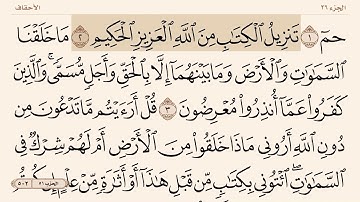 الجزء ٢٦ الأحقاف
حمٓ ١ تَنزِيلُ ٱلْكِتَٰبِ مِنَ ٱللَّهِ ٱلْعَزِيزِ ٱلْحَكِيمِ ٢ مَا خَلَقْنَا
ٱلسَّمَٰوَٰتِ وَٱلْأَرْضَ وَمَا بَيْنَهُمَآ إِلَّا بِٱلْحَقِّ وَأَجَلٍ مُّسَمًّى ۚ وَٱلَّذِينَ
كَفَرُوا۟ عَمَّآ أُنذِرُوا۟ مُعْرِضُونَ ٣ قُلْ أَرَءَيْتُم مَّا تَدْعُونَ مِن
دُونِ ٱللَّهِ أَرُونِى مَاذَا خَلَقُوا۟ مِنَ ٱلْأَرْضِ أَمْ لَهُمْ شِرْكٌ فِى
ٱلسَّمَٰوَٰتِ ۖ ٱئْتُونِى بِكِتَٰبٍ مِّن قَبْلِ هَٰذَآ أَوْ أَثَٰرَةٍ مِّنْ عِلْمٍ إِن كُنتُمْ
الحزب ٥١ ٥٠٢